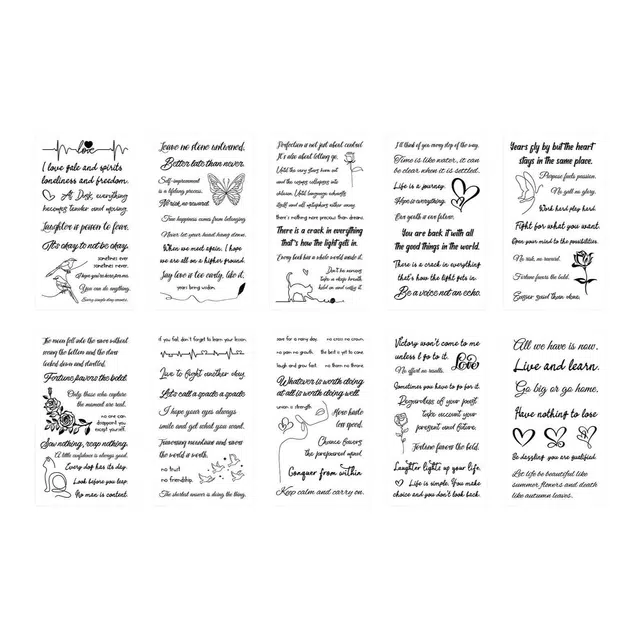 love
I love fate and spirits
loneliness and freedom.
At Dusk, everything
becomes tender and moving.
Laughter is poison to fear.
It's okay to not be okay.
sometimes ever
sometimes never.
Hope you've been for me.
You can do anything.
Every simple day counts.
Leave no stone unturned.
Better late than never.
Self-improvement
is a lifelong process.
No risk no reward.
True happiness comes from belonging
Never let your head hang down.
When we meet again, I hope
we are all on a higher ground.
Say love is too early, like it,
years bring wisdom.
Perfection is not just about control
It's also about letting go.
Until the very stars burn out
and the cosmos collapses into
oblivion. Until language unravels
itself and all metaphors wither away
there's nothing more precious than dreams.
There is a crack in everything
that's how the light gets in.
Every book has a whole world inside it.
Don't be nervous
take a deep breath
hold on and make it.
I'll think of you every step of the way.
Time is like water, it can
be clear when it is settled.
Life is a journey.
Hope is everything.
Our youth is our fellow.
You are back it with all
the good things in the world.
There is a crack in everything
that's how the light gets in.
Be a voice not an echo.
Years gly by but the heart
stays in the same place.
Purpose fuels passion.
No guts no glory.
Work hard play hard.
Fight for what you want.
Open your mind to the possibilities.
No risk, no reward.
Fortune favors the bold.
Easier said than done.
The moon fell into the vase without
seeing the bottom and the stars
looked down and startled.
Fortune favors the bold.
Only those who capture
the moment are real.
no one can
disappoint you
except yourself.
Sow nothing, reap nothing.
A little confidence is always good.
Every dog has its day.
Look before you leap.
No man is content.
if you fail, don't forget to learn your lesson.
Live to fight another day.
Let's call a spade a spade.
I hope your eyes always
smile and get what you want.
Traversing mountains and rivers
the world is worth.
no trust
no friendship.
The shortest answer is doing the thing.
save for a rainy day.
no cross no crown.
no pain no growth.
the best is yet to come.
laugh and grow fat.
no thorn no throne.
Whatever is worth doing
at all is worth doing well.
union is strength.
More haste
less speed.
Chance favors
the prepared mind.
Conquer from within
Keep calm and carry on.
Victory won't come to me
unless I go to it.
No effort no results.
Love
Sometimes you have to go for it.
Regardless of your past
Take account your
present and future.
Fortune favors the bold.
Laughter lights up your life.
Life is simple. You make
choice and you don't look back.
All we have is now.
Live and learn.
Go big or go home.
Have nothing to lose
Be dazzling you are qualified.
Let life be beautiful like
summer flowers and death
like autumn leaves.